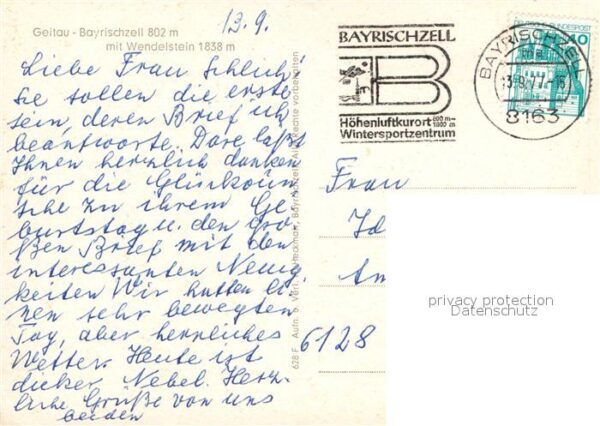 Geitau - Bayrischzell 802 m
mit Wendelstein 1838 m
13.9.
Liebe Frau Schlich
Sie sollen die erste
sein, deren Brief ich
beantworte. Dore läßt
Ihnen herzlich danken
für die Glückwün
sche zu ihrem Ge
burtstag u. den gro
ßen Brief mit den
interessanten Neuig
keiten Wir hatten ei
nen sehr bewegten
Tag, aber herrliches
Wetter. Heute ist
dicker Nebel. Herz-
liche Grüße von uns
beiden
678 F Aufn. u. Verl. Bayrischzell Alle Rechte vorbehalten
BAYRISCHZELL
B
Höhenluftkurort 800 m-1800 m
Wintersportzentrum
BAYRISCHZELL
13.-9.77.-15
8163
DEUTSCHE BUNDESPOST
40
Frau
Id
An
6128
privacy protection
Datenschutz